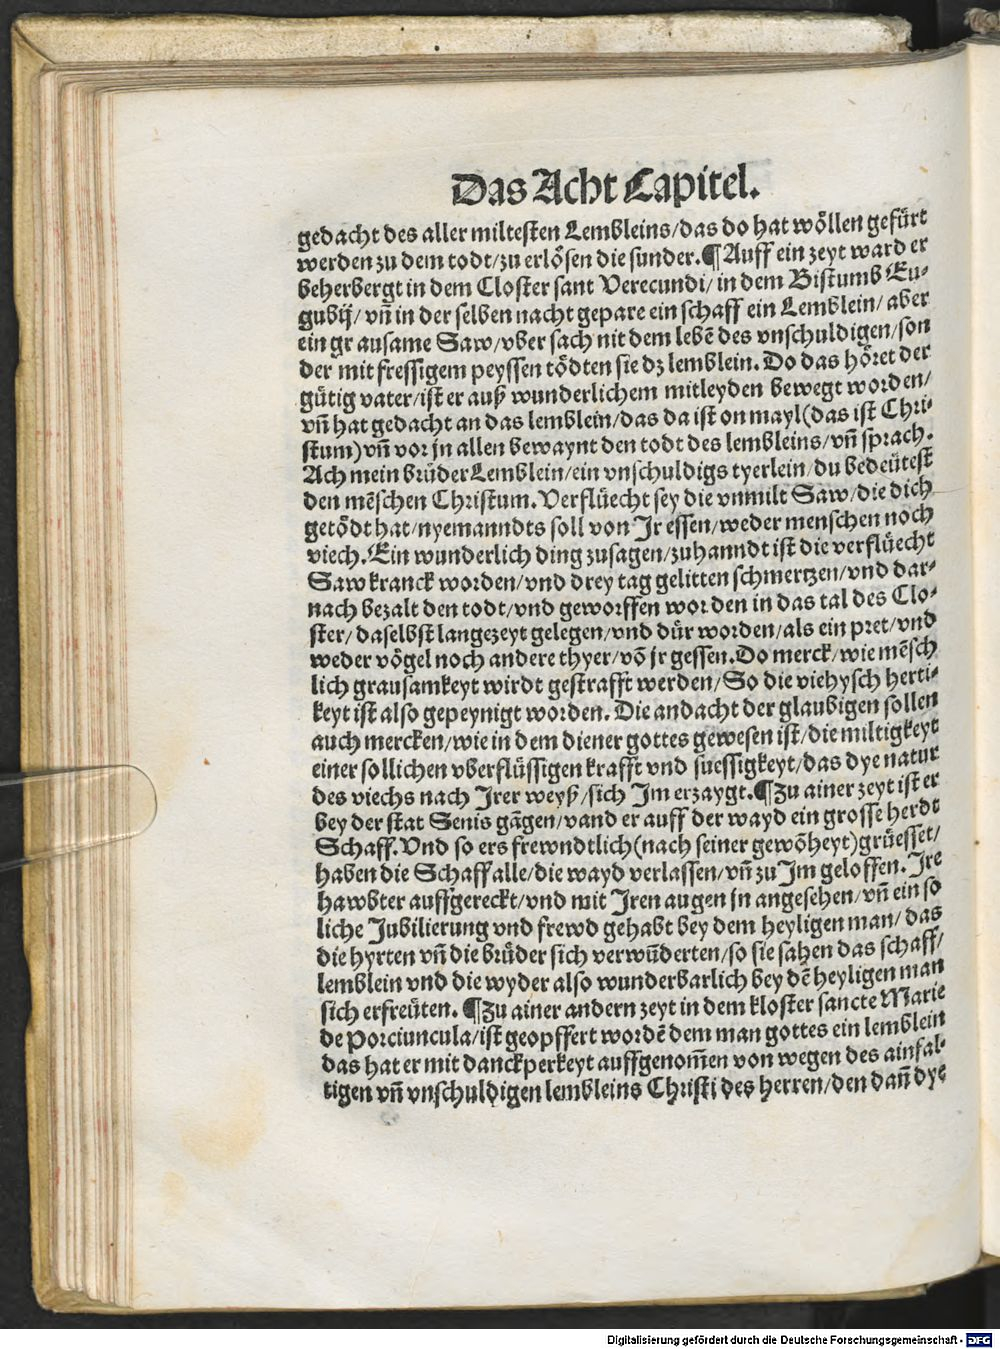 Das Acht Capitel.
gedacht des aller miltesten Lembleins/das do hat wöllen gefürt
werden zu dem todt/zu erlösen die sunder.¶Auff ein zeyt ward er
beherbergt in dem Closter sant Verecundi/in dem Bistumb Eu-
gubij/ vñ in der selben nacht gepare ein schaff ein Lemblein/ aber
ein grausame Saw/vber sach nit dem lebē des vnschuldigen/son
der mit fressigem peyssen tödten sie dz lemblein. Do das höret der
gütig vater/ist er auß wunderlichem mitleyden bewegt worden/
vñ hat gedacht an das lemblein/das da ist on mayl(das ist Chri-
stum)vñ vor jn allen bewaynt den todt des lembleins/vñ sprach.
Ach mein brůder Lemblein/ein vnschuldigs tyerlein/du bedeütest
den mēschen Christum.Verflüecht sey die vnmilt Saw/die dich
getödt hat/nyemanndts soll von Jr essen/weder menschen noch
viech.Ein wunderlich ding zusagen/zuhanndt ist die verflüecht
Saw kranck worden/vnd drey tag gelitten schmertzen/vnd dar-
nach bezalt den todt/vnd geworffen worden in das tal des Clo-
ster/ daselbst langezeyt gelegen/vnd dür worden/als ein pret/vnd
weder vögel noch andere thyer/vō jr gessen.Do merck/wie mēsch
lich grausamkeyt wirdt gestrafft werden/So die viehysch herti-
keyt ist also gepeynigt worden. Die andacht der glaubigen sollen
auch mercken/wie in dem diener gottes gewesen ist/die miltigkeyt
einer sollichen vberflüssigen krafft vnd suessigkeyt/das dye natur
des viechs nach Jrer weyß/sich Jm erzaygt.¶Zu ainer zeyt ist er
bey der stat Senis gāgen/vand er auff der wayd ein grosse herdt
Schaff.Vnd so ers frewndtlich(nach seiner gewōheyt)grüesset/
haben die Schaff alle/die wayd verlassen/vñ zu Jm geloffen. Jre
hawbter auffgereckt/vnd mit Jren augen jn angesehen/vñ ein so
liche Jubilierung vnd frewd gehabt bey dem heyligen man/ das
die hyrten vñ die brüder sich verwūderten/so sie sahen das schaff/
lemblein vnd die wyder also wunderbarlich bey dē heyligen man
sich erfreüten. ¶Zu ainer andern zeyt in dem kloster sancte Marie
de Porciuncula/ist geopffert wordē dem man gottes ein lemblein
das hat er mit danckperkeyt auffgenom̄en von wegen des ainfal-
tigen vñ vnschuldigen lembleins Christi des herren/den dañ dye
Digitalisierung gefördert durch die Deutsche Forschungsgemeinschaft - DFG